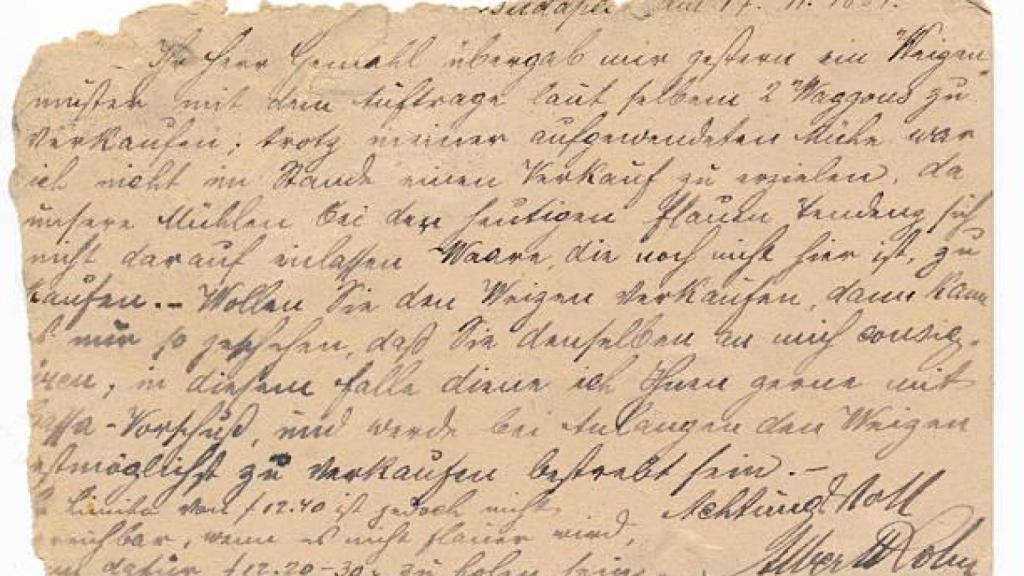 Budapest am 17. 11. 1881.
Ihr Herr Gemahl übergab mir gestern ein Weizen
muster mit dem Auftrage laut selbem 2 Waggons zu
verkaufen; trotz meiner aufgewendeten Mühe war
ich nicht im Stande einen Verkauf zu erzielen, da
unsere Mühlen bei der heutigen flauen Tendenz sich
nicht darauf einlassen Waare, die noch nicht hier ist, zu
kaufen. – Wollen Sie den Weizen verkaufen, dann kann
nur so geschehen, daß Sie denselben an mich consig-
iren; in diesem Falle diene ich Ihnen gerne mit
assa-Vorschuß, und werde bei Anlangen den Weizen
estmöglichst zu verkaufen bestrebt sein. –
Limito von f 12.40 ist jedoch nicht
reichbar, wenn es nicht flauer wird,
dafür f 12.20-30 zu holen sein
Achtungsvoll
Albert Kohn